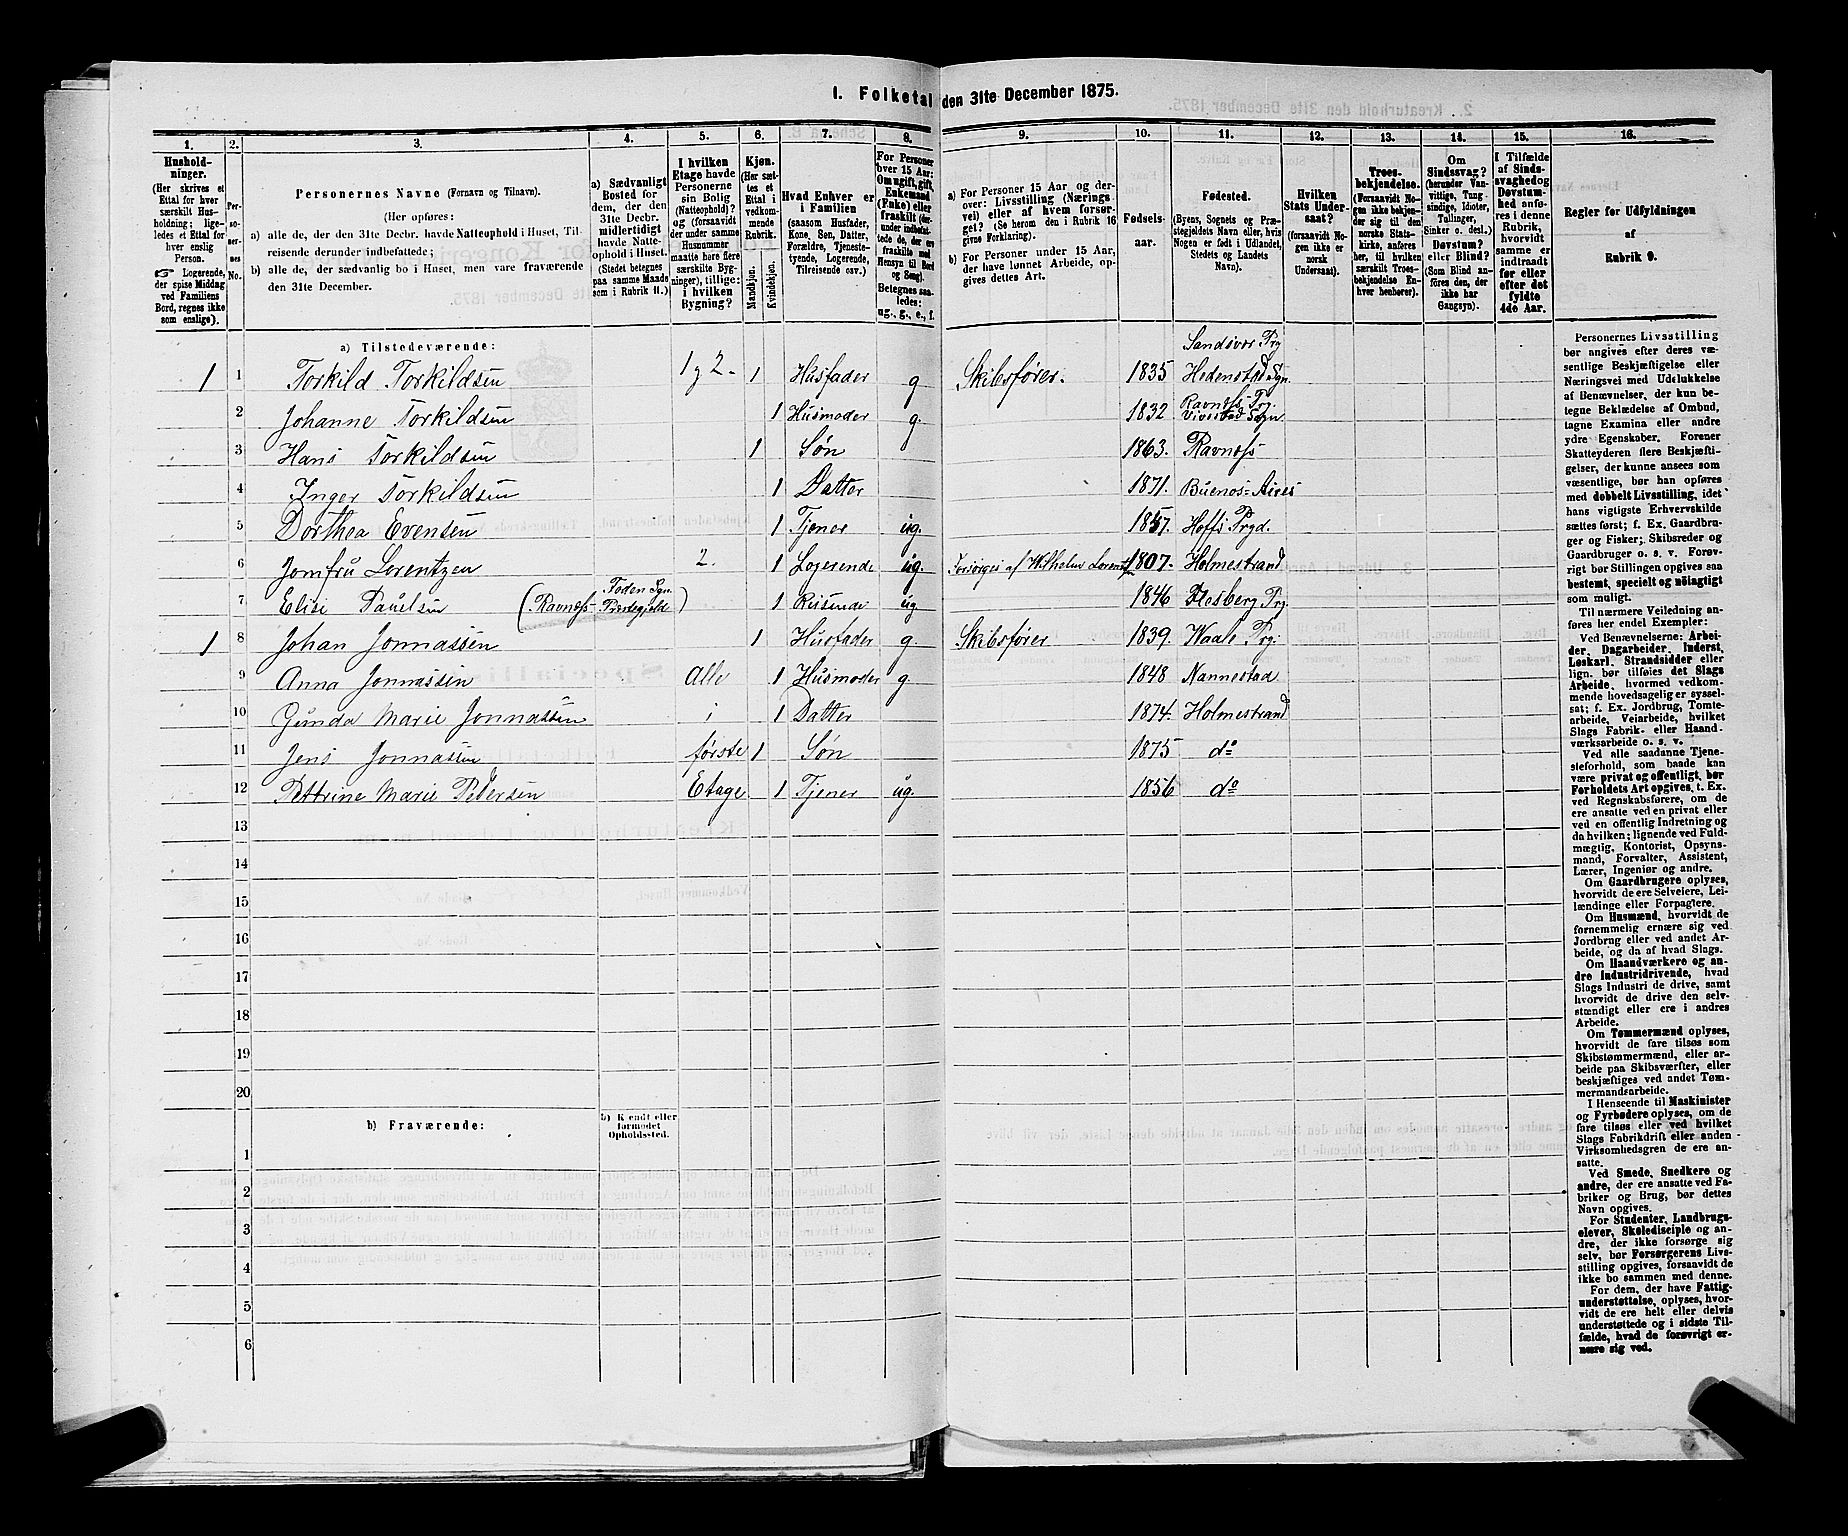 1. Folketal den 31te December 1875.
1. 2. 3. 4. 5. 6. 7. 8. 9. 10. 11. 12. 13. 14. 15. 16.
Hushold-
ninger.
(Her skrives et
Ettal for hver
særskilt Hus-
holdning; lige-
ledes et Ettal for
hver enslig
Person.
☞ Logerende,
der spise Middag
ved Familiens
Bord, regnes ikke
som enslige).
Per-
so-
ner-
nes
No.
Personernes Navne (Fornavn og Tilnavn).
(Her opføres:
a) alle de, der den 31te Decbr. havde Natteophold i Huset, Til-
reisende derunder indbefattede;
b) alle de, der sædvanlig bo i Huset, men vare fraværende
den 31te December.
a) Sædvanligt
Bosted for
dem, der den
31te Decbr.
midlertidigt
havde Natte-
ophold i Huset.
(Stedet betegnes
paa samme Maade
som i Rubrik 11.)
I hvilken
Etage havde
Personerne
sin Bolig
(Natteophold)?
og (forsaavidt
der under samme
Husnummer
maatte høre flere
særskilte Byg-
ninger), tillige:
i hvilken
Bygning?
Kjøn.
(Her sæt-
tes et
Ettal i
vedkom-
mende
Rubrik.
Mandkjøn.
Kvindekjøn.
Hvad Enhver er
i Familien
(saasom Husfader,
Kone, Søn, Datter,
Forældre, Tjeneste-
tyende, Logerende,
Tilreisende osv.)
For Personer
over 15 Aar:
Om ugift, gift,
Enkemand
(Enke) eller
fraskilt (der-
under indbefat-
tede de, der ere
fraskilte med
Hensyn til Bord
og Seng).
Betegnes saa-
ledes:
ug., g., e., f.
a) For Personer 15 Aar og der-
over: Livsstilling (Nærings-
vei) eller af hvem forsør-
get? (Se herom den i Rubrik 16
givne Forklaring).
b) For Personer under 15 Aar,
der have lønnet Arbeide, op-
gives dettes Art.
Fødsels-
aar.
Fødested.
(Byens, Sognets og Præ-
stegjeldets Navn eller, hvis
Nogen er født i Udlandet,
Stedets og Landets
Navn).
Hvilken
Stats Under-
saat?
(forsaavidt No-
gen ikke er
norsk
Undersaat).
Troes-
bekjendelse.
(Forsaavidt No-
gen ikke bekjen-
der sig til den
norske Stats-
kirke, anføres
her, til hvilken
særskilt Troes-
bekjendelse En-
hver henhører).
Om
Sindssvag?
(herunder Van-
vittige, Tung-
sindige, Idioter,
Tullinger,
Sinker o. desl.)
Døvstum?
eller Blind?
(Som Blind an-
føres den, der
ikke har
Gangsyn).
I Tilfælde
af Sinds-
svaghed og
Døvstum-
hed anfø-
res i denne
Rubrik,
hvorvidt
samme er
indtraadt
før eller
efter det
fyldte
4de Aar.
Regler for Udfyldningen
af
Rubrik 9.
a) Tilstedeværende:
1 1 Torkild Torkildsen 1 og 2. 1 Husfader g Skibsfører. 1835 Sandsvær Prg Hedenstad Sgn.
2 Johanne Torkildsen 1 Husmoder g. 1832 Ravnefs Prg. Vivestad Sogn
3 Hans Torkildsen 1 Søn 1863. Ravnefs
4 Inger Torkildsen 1 Datter 1871. Buenos-Aires
5 Dorthea Evensen 1 Tjener ug. 1857. Hoffs Prgd.
6 Jomfru Lorentzen 2. 1 Logerende ug. Forsørges af Wilhelm Lorentzen 1807. Holmestrand
7 Elise Paulsen (Ravnefs Foden Sgn. Prestegjeld) 1 Reisende ug 1846 Flesberg Prg
1 8 Johan Jonnassen 1 Husfader g. Skibsfører 1839. Waale Prg:
9 Anna Jonnassen Alle 1 Husmoder g. 1848 Nannestad
10 Gunda Marie Jonnassen i 1 Datter 1874. Holmestrand
11 Jens Jonnassen første 1 Søn 1875 do
12 Pettrine Marie Petersen Etage 1 Tjener ug. 1856 do
13
14
15
16
17
18
19
20
b) Fraværende:
b) Kjendt eller
formodet
Opholdssted.
1
2
3
4
5
6
Personernes Livsstilling
bør angives efter deres væ-
sentlige Beskjæftigelse eller
Næringsvei med Udelukkelse
af Benævnelser, der kun be-
tegne Beklædelse af Ombud,
tagne Examina eller andre
ydre Egenskaber. Forener
Skatteyderen flere Beskjæfti-
gelser, der kunne ansees som
væsentlige, bør han opføres
med dobbelt Livsstilling, idet
hans vigtigste Erhvervskilde
sættes først; f. Ex. Gaardbru-
ger og Fisker; Skibsreder og
Gaardbruger o. s. v. Forøv-
rigt bør Stillingen opgives saa
bestemt, specielt og nøiagtigt
som muligt.
Til nærmere Veiledning an-
føres her endel Exempler:
Ved Benævnelserne: Arbei-
der, Dagarbeider, Inderst,
Løskarl, Strandsidder eller
lign. bør tilføies det Slags
Arbeide, hvormed vedkom-
mende hovedsagelig er syssel-
sat; f. Ex. Jordbrug, Tomte-
arbeide, Veiarbeide, hvilket
Slags Fabrik- eller Haand-
værksarbeide o. s. v.
Ved alle saadanne Tjene-
steforhold, som baade kan
være privat og offentligt, bør
Forholdets Art opgives, t. Ex.
ved Regnskabsførere, om de
ere ansatte ved en privat eller
ved en offentlig Indretning og
da hvilken; lignende ved Fuld-
mægtig, Kontorist, Opsyns-
mand, Forvalter, Assistent,
Lærer, Ingeniør og andre.
Om Gaardbrugere oplyses,
hvorvidt de ere Selveiere, Lei-
lændinge eller Forpagtere.
Om Husmænd, hvorvidt de
fornemmelig ernære sig ved
Jordbrug eller ved andet Ar-
beide, og da af hvad Slags.
Om Haandværkere og an-
dre Industridrivende, hvad
Slags Industri de drive, samt
hvorvidt de drive den selv-
stændigt eller ere i andres
Arbeide.
Om Tømmermænd oplyses,
hvorvidt de fare tilsøs som
Skibstømmermænd, eller ar-
beide paa Skibsværfter, eller
beskjæftiges ved andet Tøm-
mermandsarbeide.
I Henseende til Maskinister
og Fyrbødere oplyses, om de
fare tilsøs eller ved hvilket
Slags Fabrikdrift eller anden
Virksomhedsgren de ere an-
satte.
Ved Smede, Snedkere og
andre, der ere ansatte ved Fa-
briker og Brug, bør dettes
Navn opgives.
For Studenter, Landbrugs-
elever, Skoledisciple og an-
dre, der ikke forsørge sig
selv, bør Forsørgerens Livs-
stilling opgives, forsaavidt de
ikke bo sammen med denne.
For dem, der have Fattig-
understøttelse, oplyses, hvor-
vidt de ere helt eller delvis
understøttede og i sidste Til-
fælde, hvad de forøvrigt er-
nære sig ved.